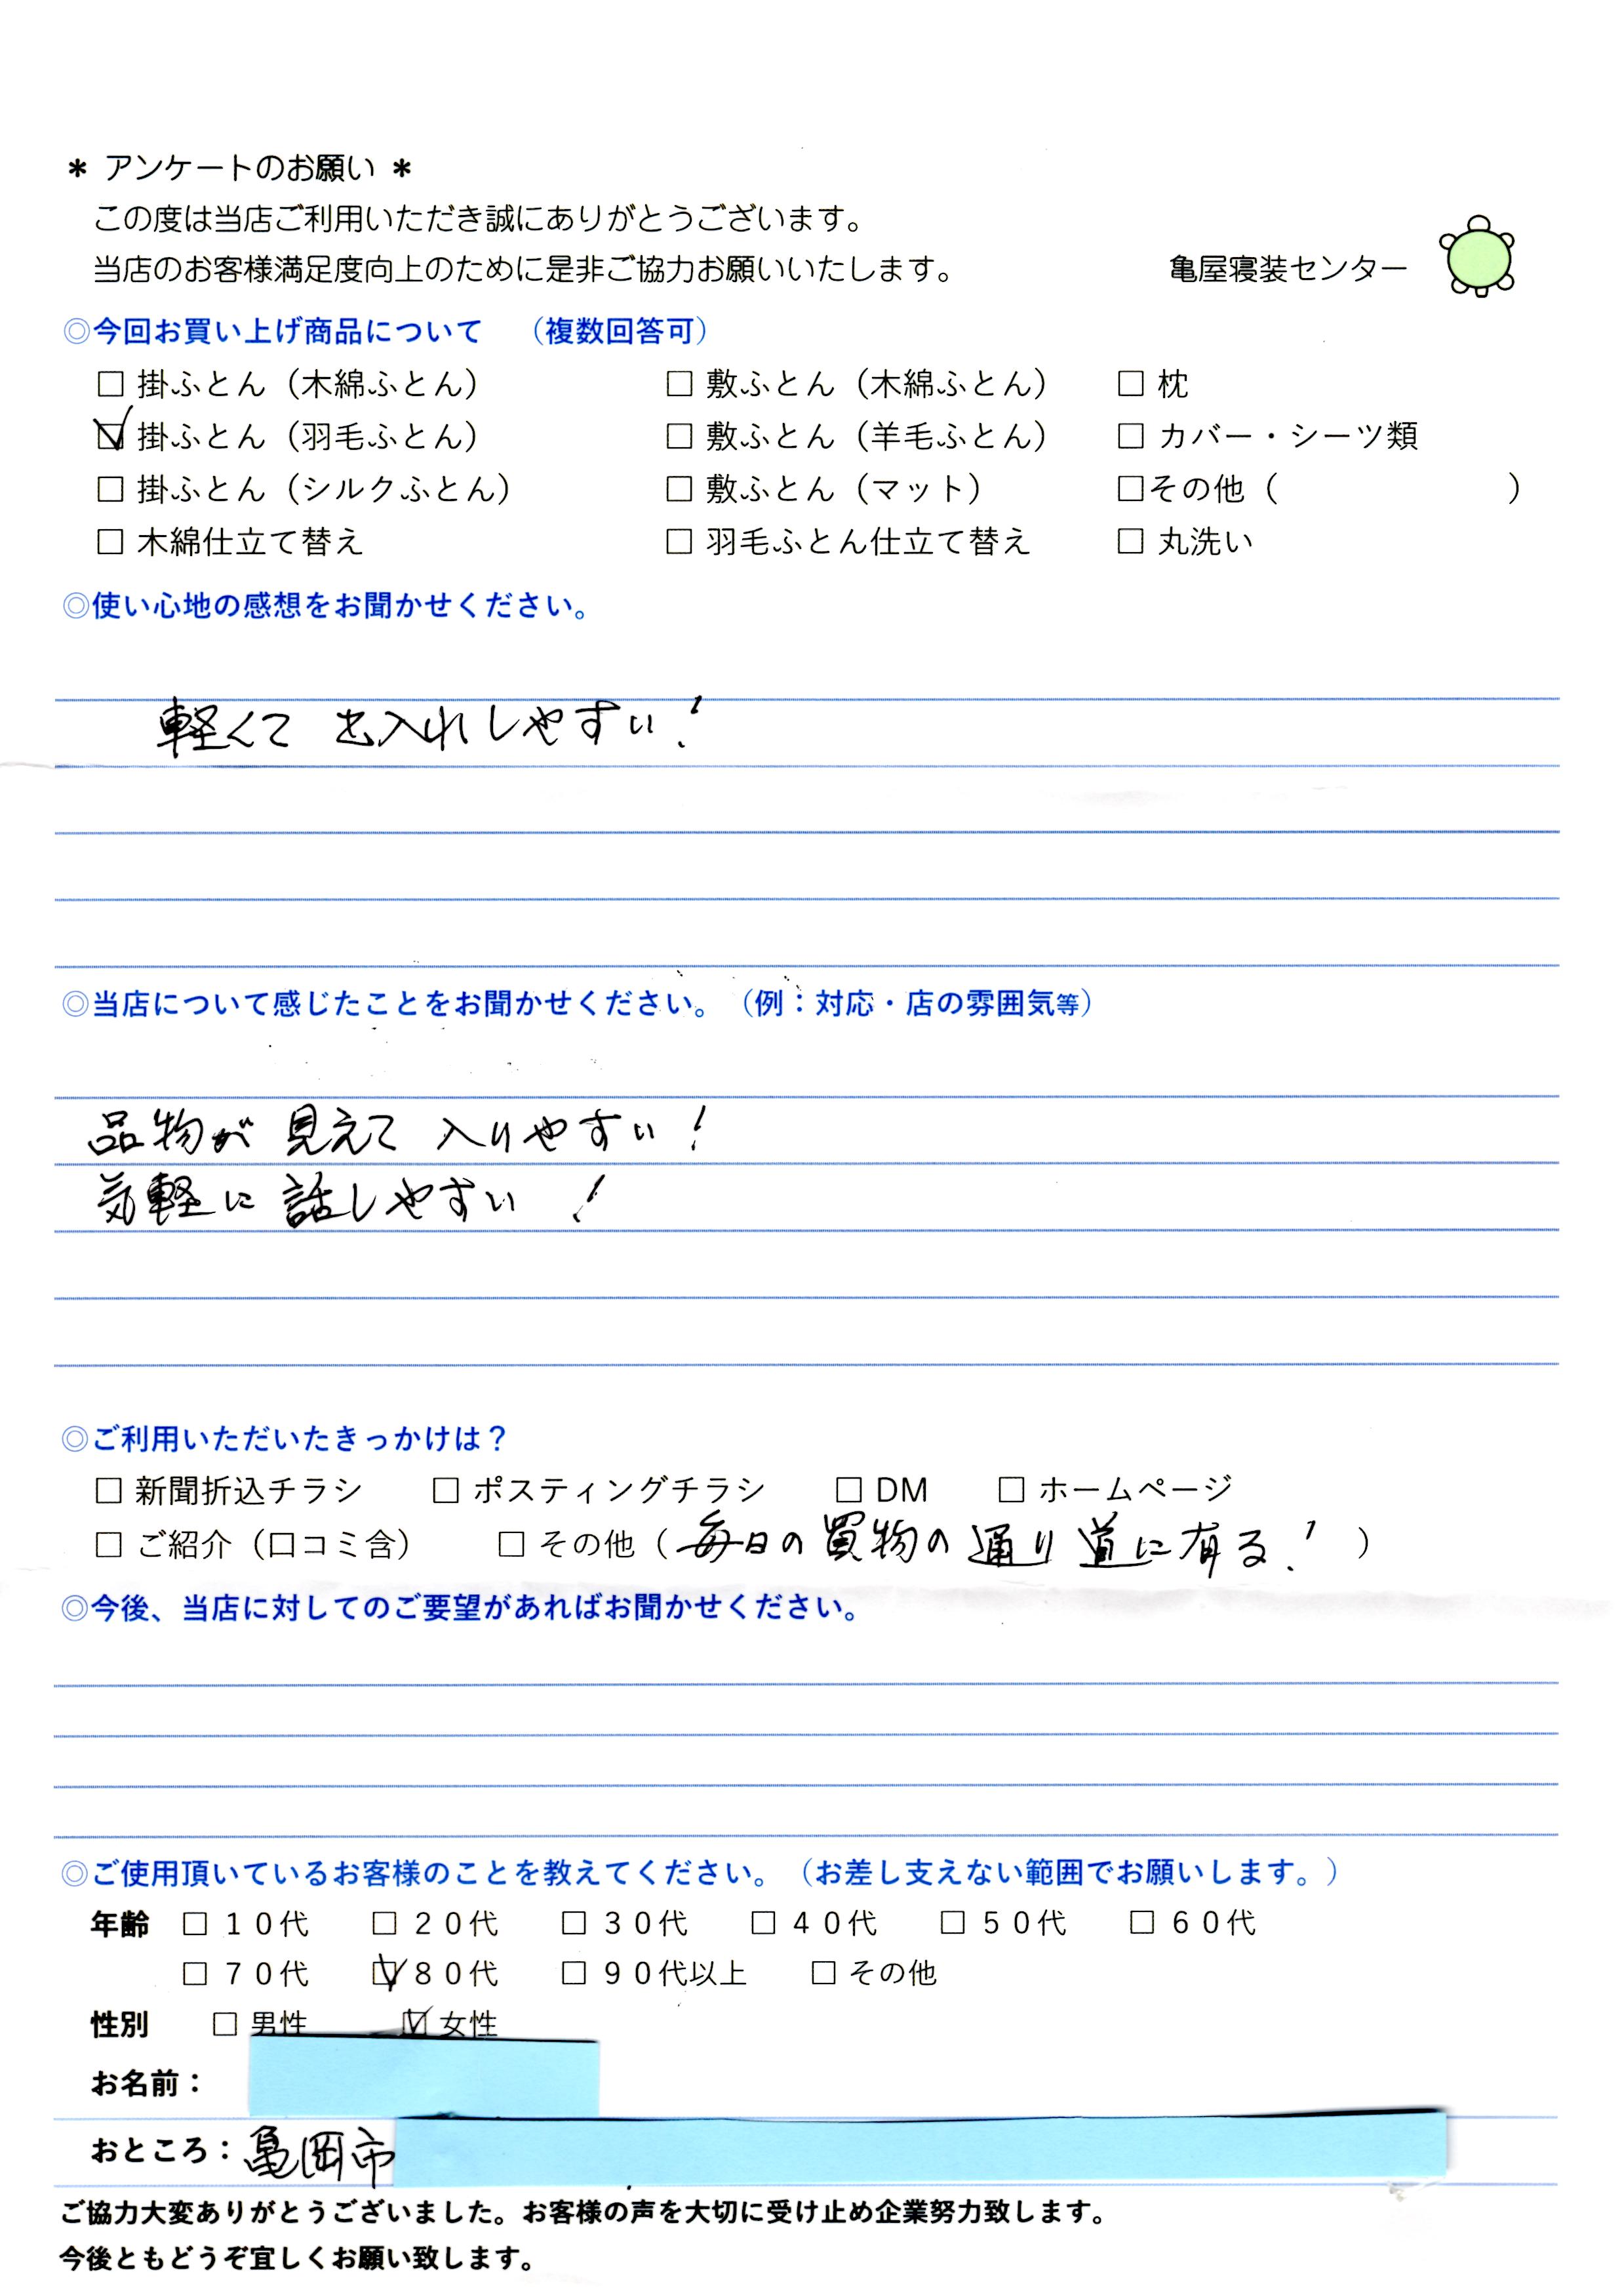 ＊ アンケートのお願い ＊
この度は当店ご利用いただき誠にありがとうございます。
当店のお客様満足度向上のために是非ご協力お願いいたします。 亀屋寝装センター
◎今回お買い上げ商品について （複数回答可）
□ 掛ふとん（木綿ふとん） □ 敷ふとん（木綿ふとん） □ 枕
☑ 掛ふとん（羽毛ふとん） □ 敷ふとん（羊毛ふとん） □ カバー・シーツ類
□ 掛ふとん（シルクふとん） □ 敷ふとん（マット） □その他（ ）
□ 木綿仕立て替え □ 羽毛ふとん仕立て替え □ 丸洗い
◎使い心地の感想をお聞かせください。
軽くて 出入れしやすい！
◎当店について感じたことをお聞かせください。（例：対応・店の雰囲気等）
品物が 見えて 入りやすい！
気軽に 話しやすい ！
◎ご利用いただいたきっかけは？
□ 新聞折込チラシ □ ポスティングチラシ □ DM □ ホームページ
□ ご紹介（口コミ含） □ その他（毎日の買物の通り道に有る！ ）
◎今後、当店に対してのご要望があればお聞かせください。
◎ご使用頂いているお客様のことを教えてください。（お差し支えない範囲でお願いします。）
年齢 □ １０代 □ ２０代 □ ３０代 □ ４０代 □ ５０代 □ ６０代
□ ７０代 ☑ ８０代 □ ９０代以上 □ その他
性別 □ 男性 ☑ 女性
お名前：
おところ：亀岡市
ご協力大変ありがとうございました。お客様の声を大切に受け止め企業努力致します。
今後ともどうぞ宜しくお願い致します。